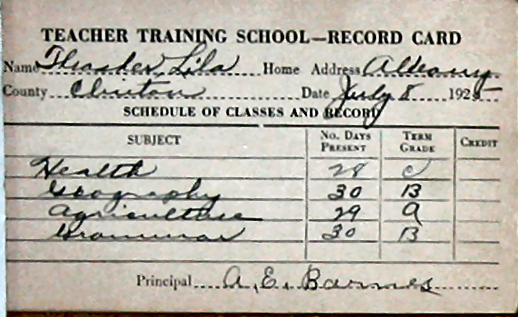 TEACHER TRAINING SCHOOL—RECORD CARD
Name Thrasher, Lila Home Address Albany
County Clinton Date July 8 192
SCHEDULE OF CLASSES AND RECORD
SUBJECT No. Days Present Term Grade Credit
Health 28 C
Geography 30 B
Agriculture 29 A
Grammar 30 B
Principal A. E. Barnes